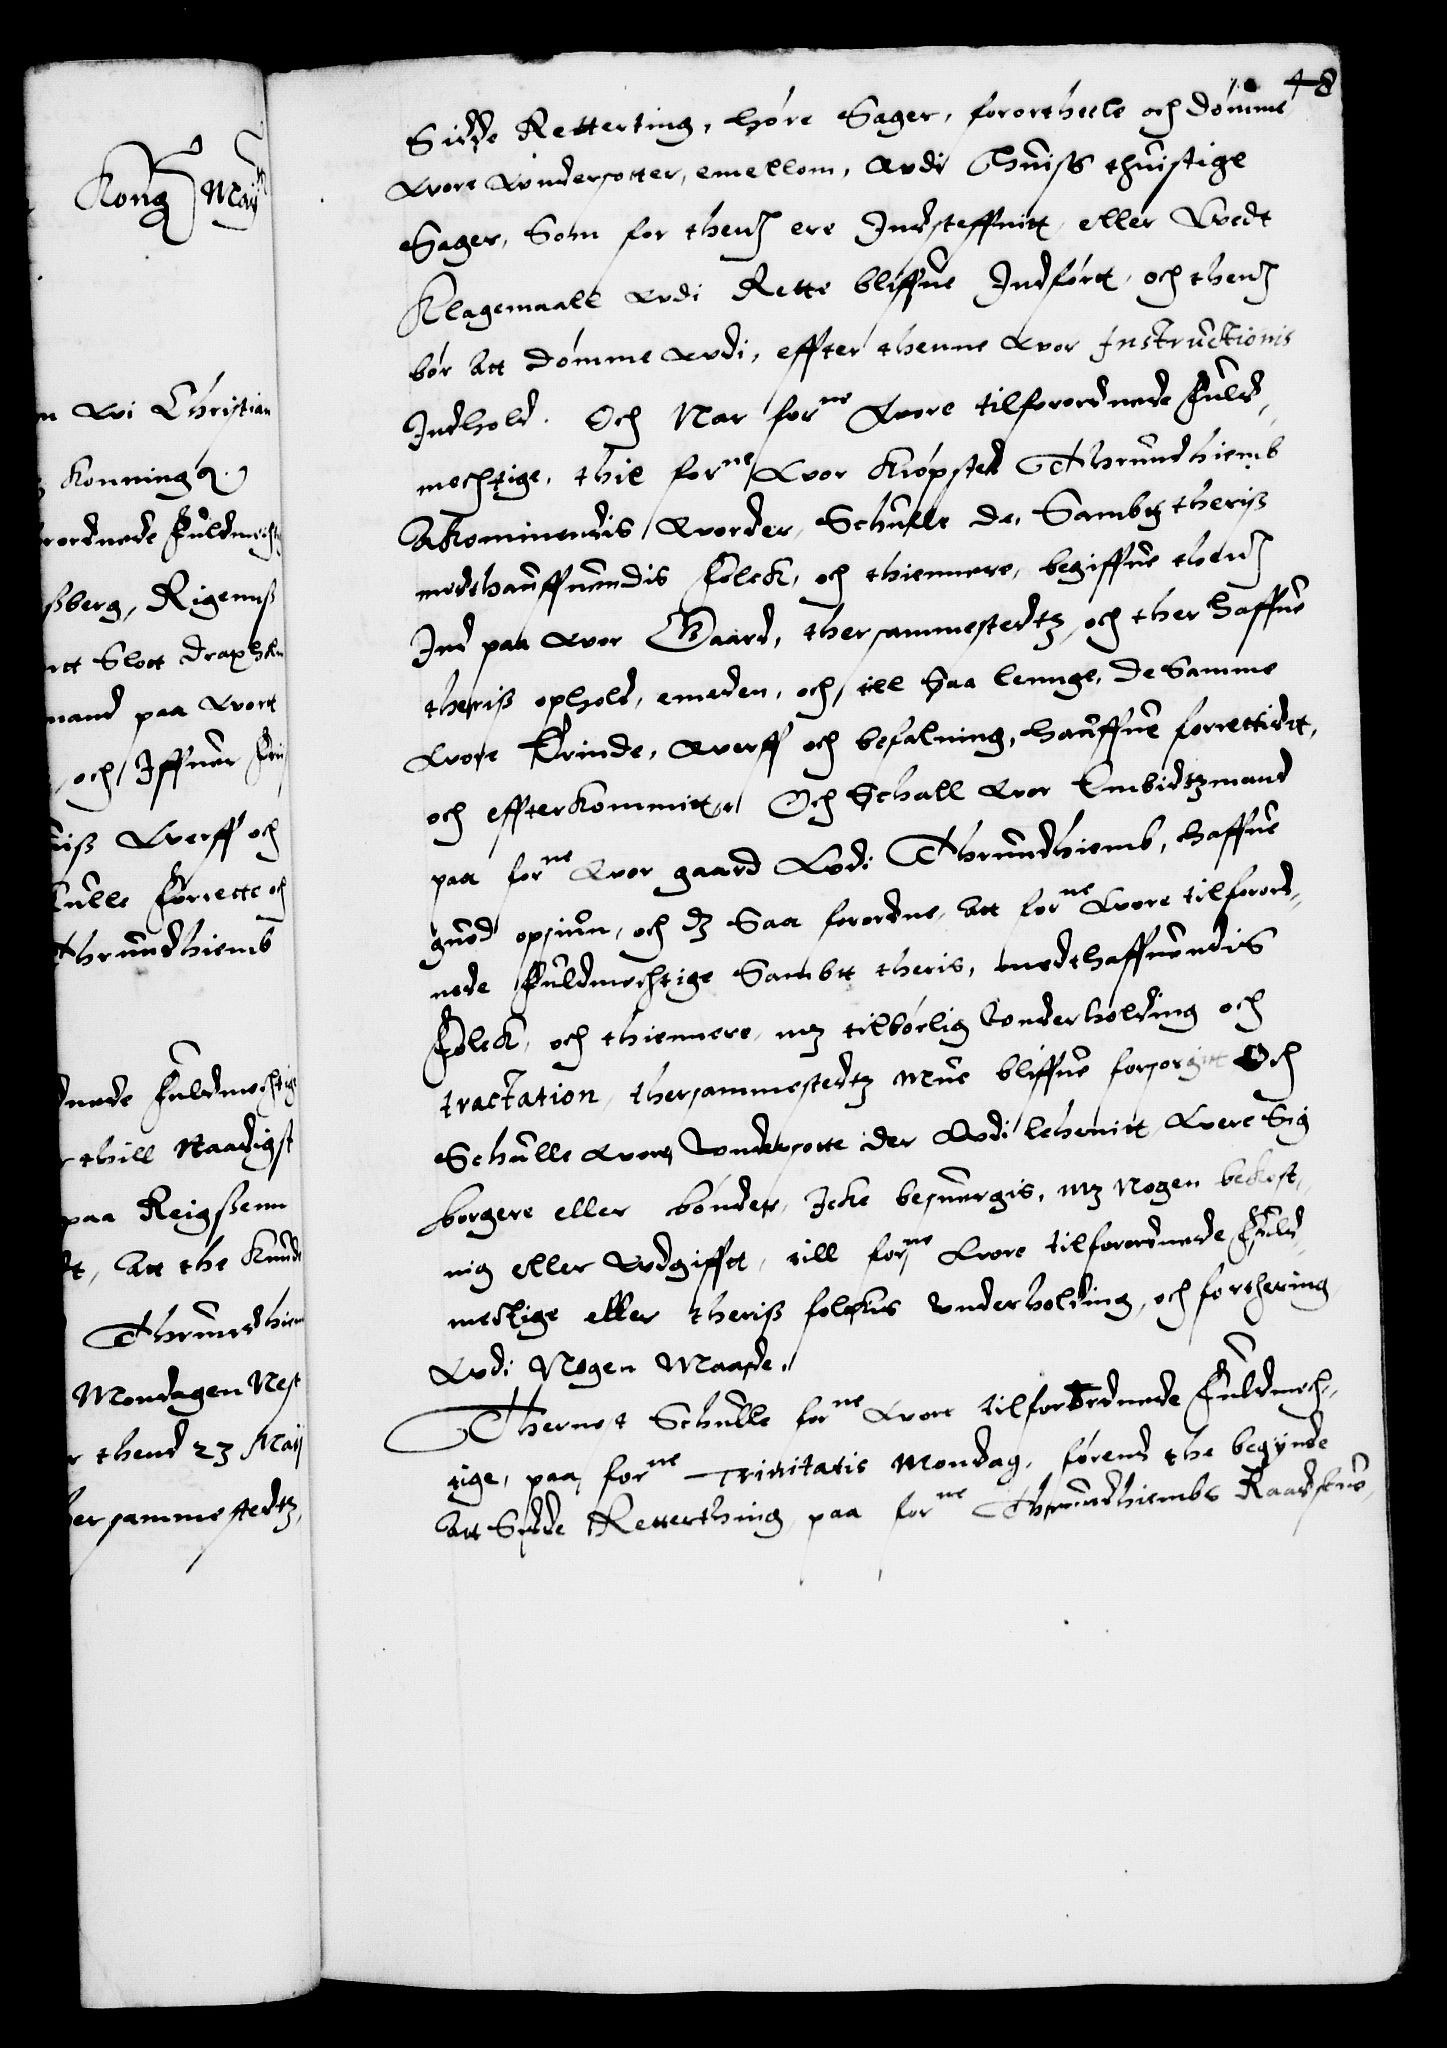 Kong Mayt
n wi Christian
konning etc.
rordnede Fuldmechtig
sberg, Rigenns
rtt Slott Draxholm
mand paa Wort
och Iffuer Fri
iis Werff och
kulle forrette och
Thrundhiemb
dnede Fuldmechtige
thill Naadigst
paa Reigssenn
t, Att the kunde
Thrundhiem
Mondagen Nest
r thend 23 Maij
her sammestedtz,
48
Sidde Retterting, høre Sager, forortheele och dömme
Wore Wndersotter, emellom, Wdi Thuiss thuistige
Sager, Som for thenn ere Indsteffnitt, eller Wedt
Klagemaall Wdi Rette bliffue Indfört, och thenn
bör Att dömme Wdi, effter thenne Wor Instructionis
Indhold. Och Nar forne Wore tilforordnede Fuld,
mechtige, thil forne Wor kiöpsted Thrundhiemb
Akominendis Worder, Schulle de, Sambtt theriss
medthauffuendis folck, och thiennere, begiffue thenn
Ind paa Wor Gaard, thersammestedtz, och ther haffue
theriss ophold, emeden, och till Saa lennge, de Samme
Wore Erinde, Werff och befalning, hauffue forrettidt,
och effterkommitt. Och Schall Wor Embidtzmand
paa forne Wor gaard Wdi Thrundhiemb, haffue
gued opsiun, och dz Saa forordne, Att forne Wore tilforord,
nede Fuldmechtige Sambtt theris, medthaffuendis
Folck, och thiennere, mz tilbörlig Wnderholding och
tractation, thersammestedtz Mue bliffue forsorgitt Och
Schulle Wore Wndersotte der Wdi lehenitt Were Sig
borgere eller bönder, Icke besuergis, mz Nogen bekost,
nig eller Wdgifft, till forne Wore tilforordnede Fuld,
mectige eller theriss folckis Wnderholding, och forthering
Wdi Nogen Maade.
Thernest Schulle forne Wore tilforordnede Fuldmech,
tige, paa forne Trinitatis Mondag, förend the begynde
Att Sidde Retterthing, paa forne Thrundhiembs Raadstue,